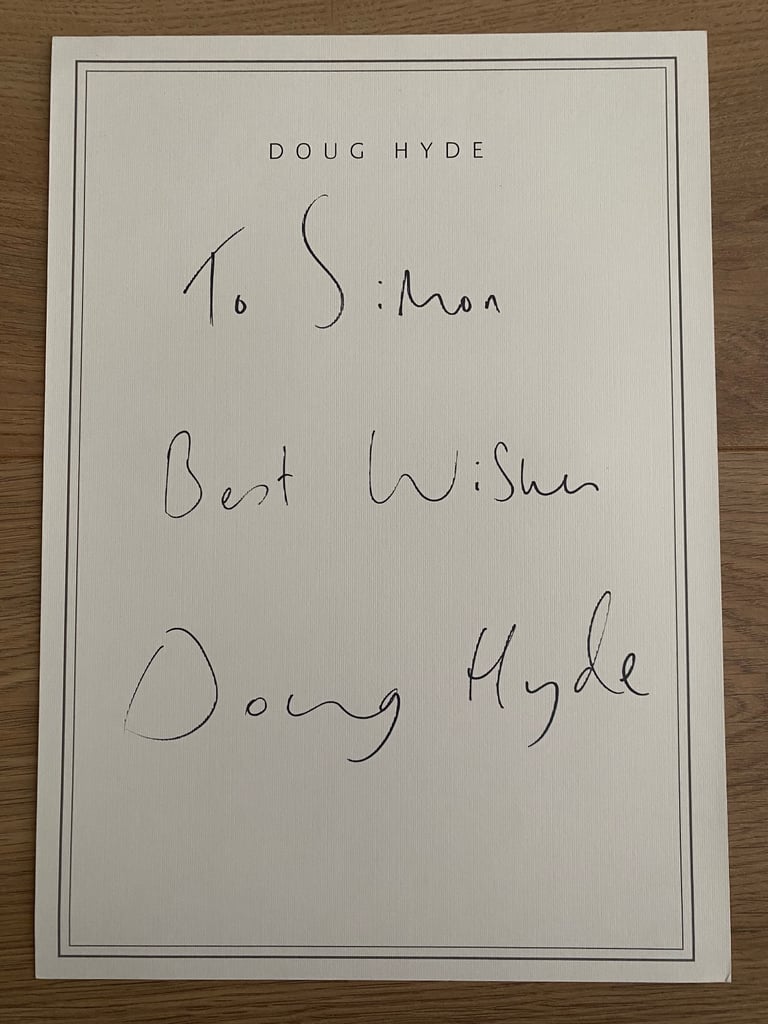 DOUG HYDE
To Simon
Best Wishes
Doug Hyde